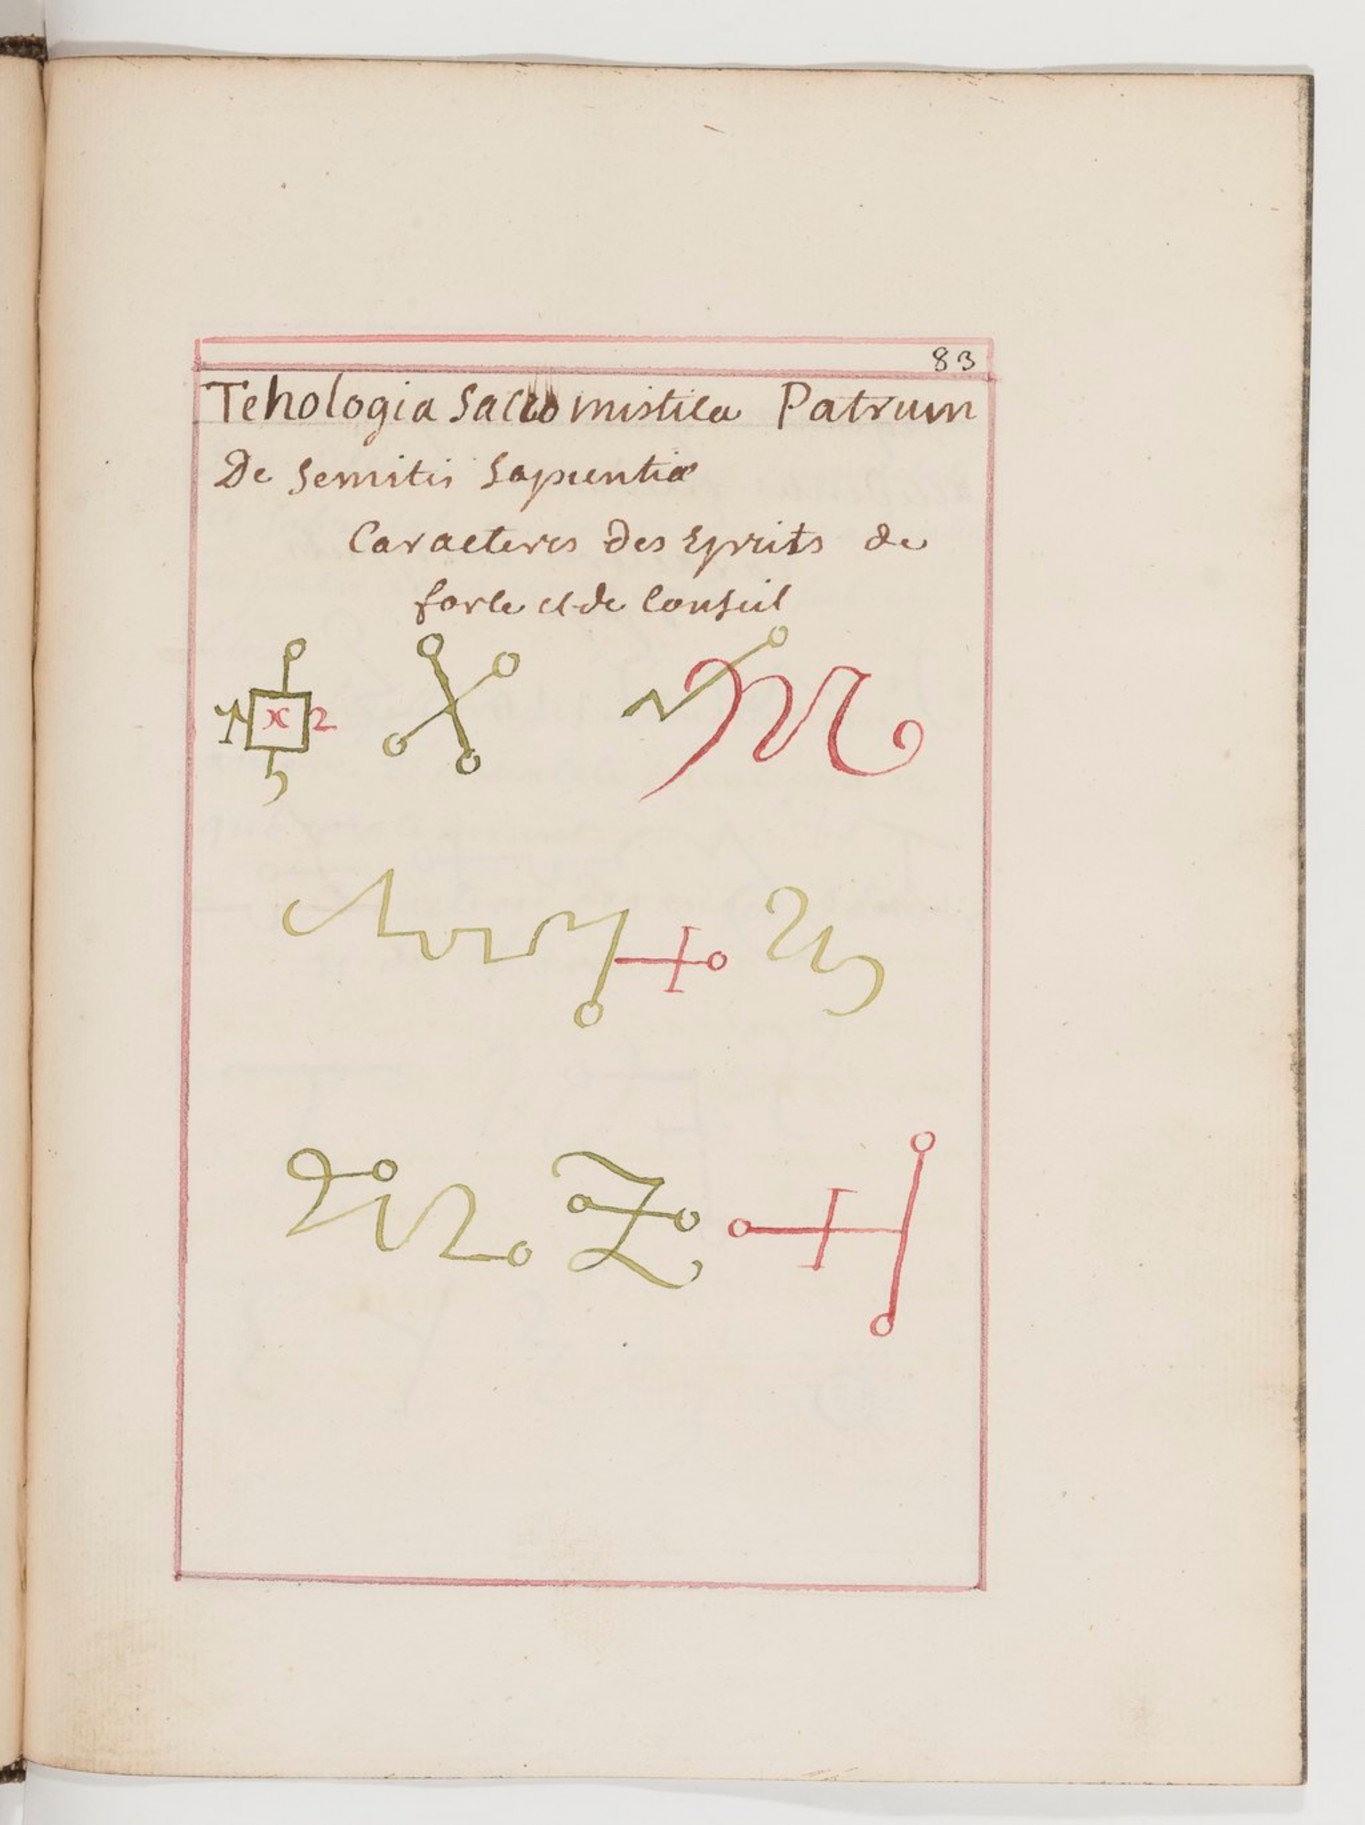 83
Tehologia Sacro mistica Patrum
De Semitis Sapientiæ
Caracteres Des Esprits de
force et de Conseil
x 2